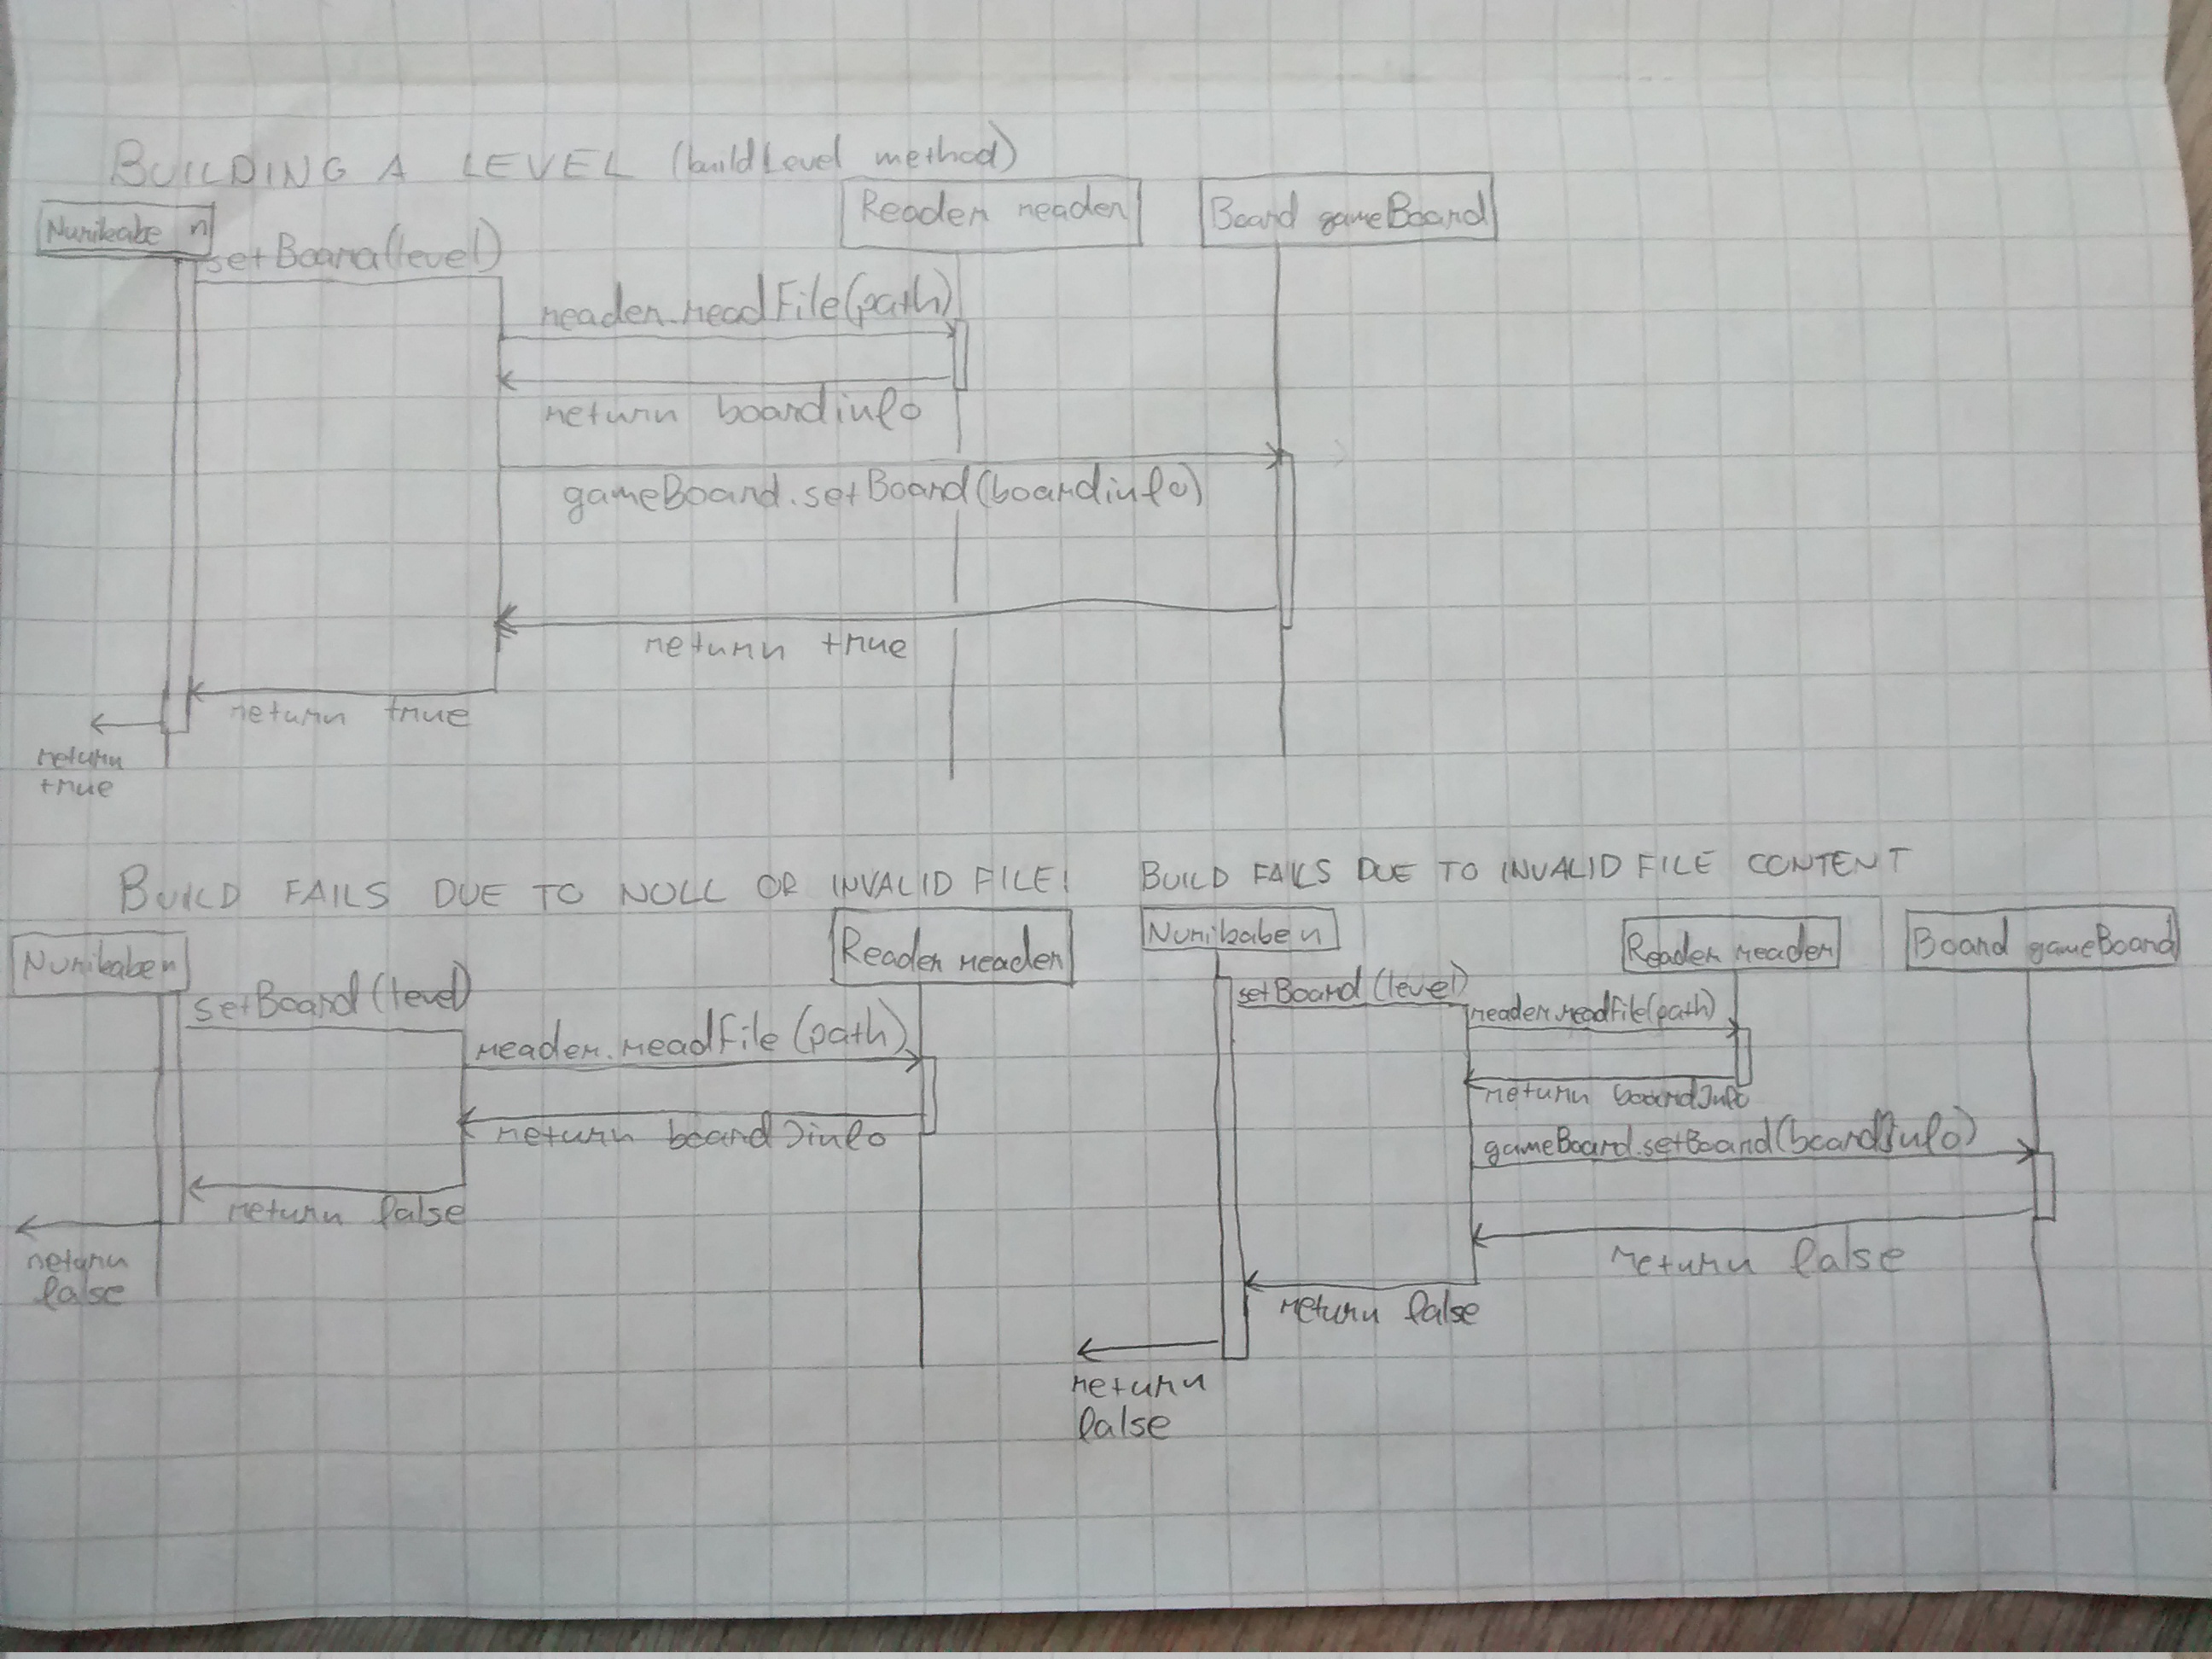 BUILDING A LEVEL (buildLevel method)
Nurikabe n
Reader reader
Board gameBoard
setBoard(level)
reader.readFile(path)
return boardinfo
gameBoard.setBoard(boardinfo)
return true
return true
return
true
BUILD FAILS DUE TO NULL OR INVALID FILE!
Nurikabe n
Reader reader
setBoard(level)
reader.readFile(path)
return boardInfo
return false
return
false
BUILD FAILS DUE TO INVALID FILE CONTENT
Nurikabe n
Reader reader
Board gameBoard
setBoard(level)
reader.readFile(path)
return boardInfo
gameBoard.setBoard(boardInfo)
return false
return false
return
false